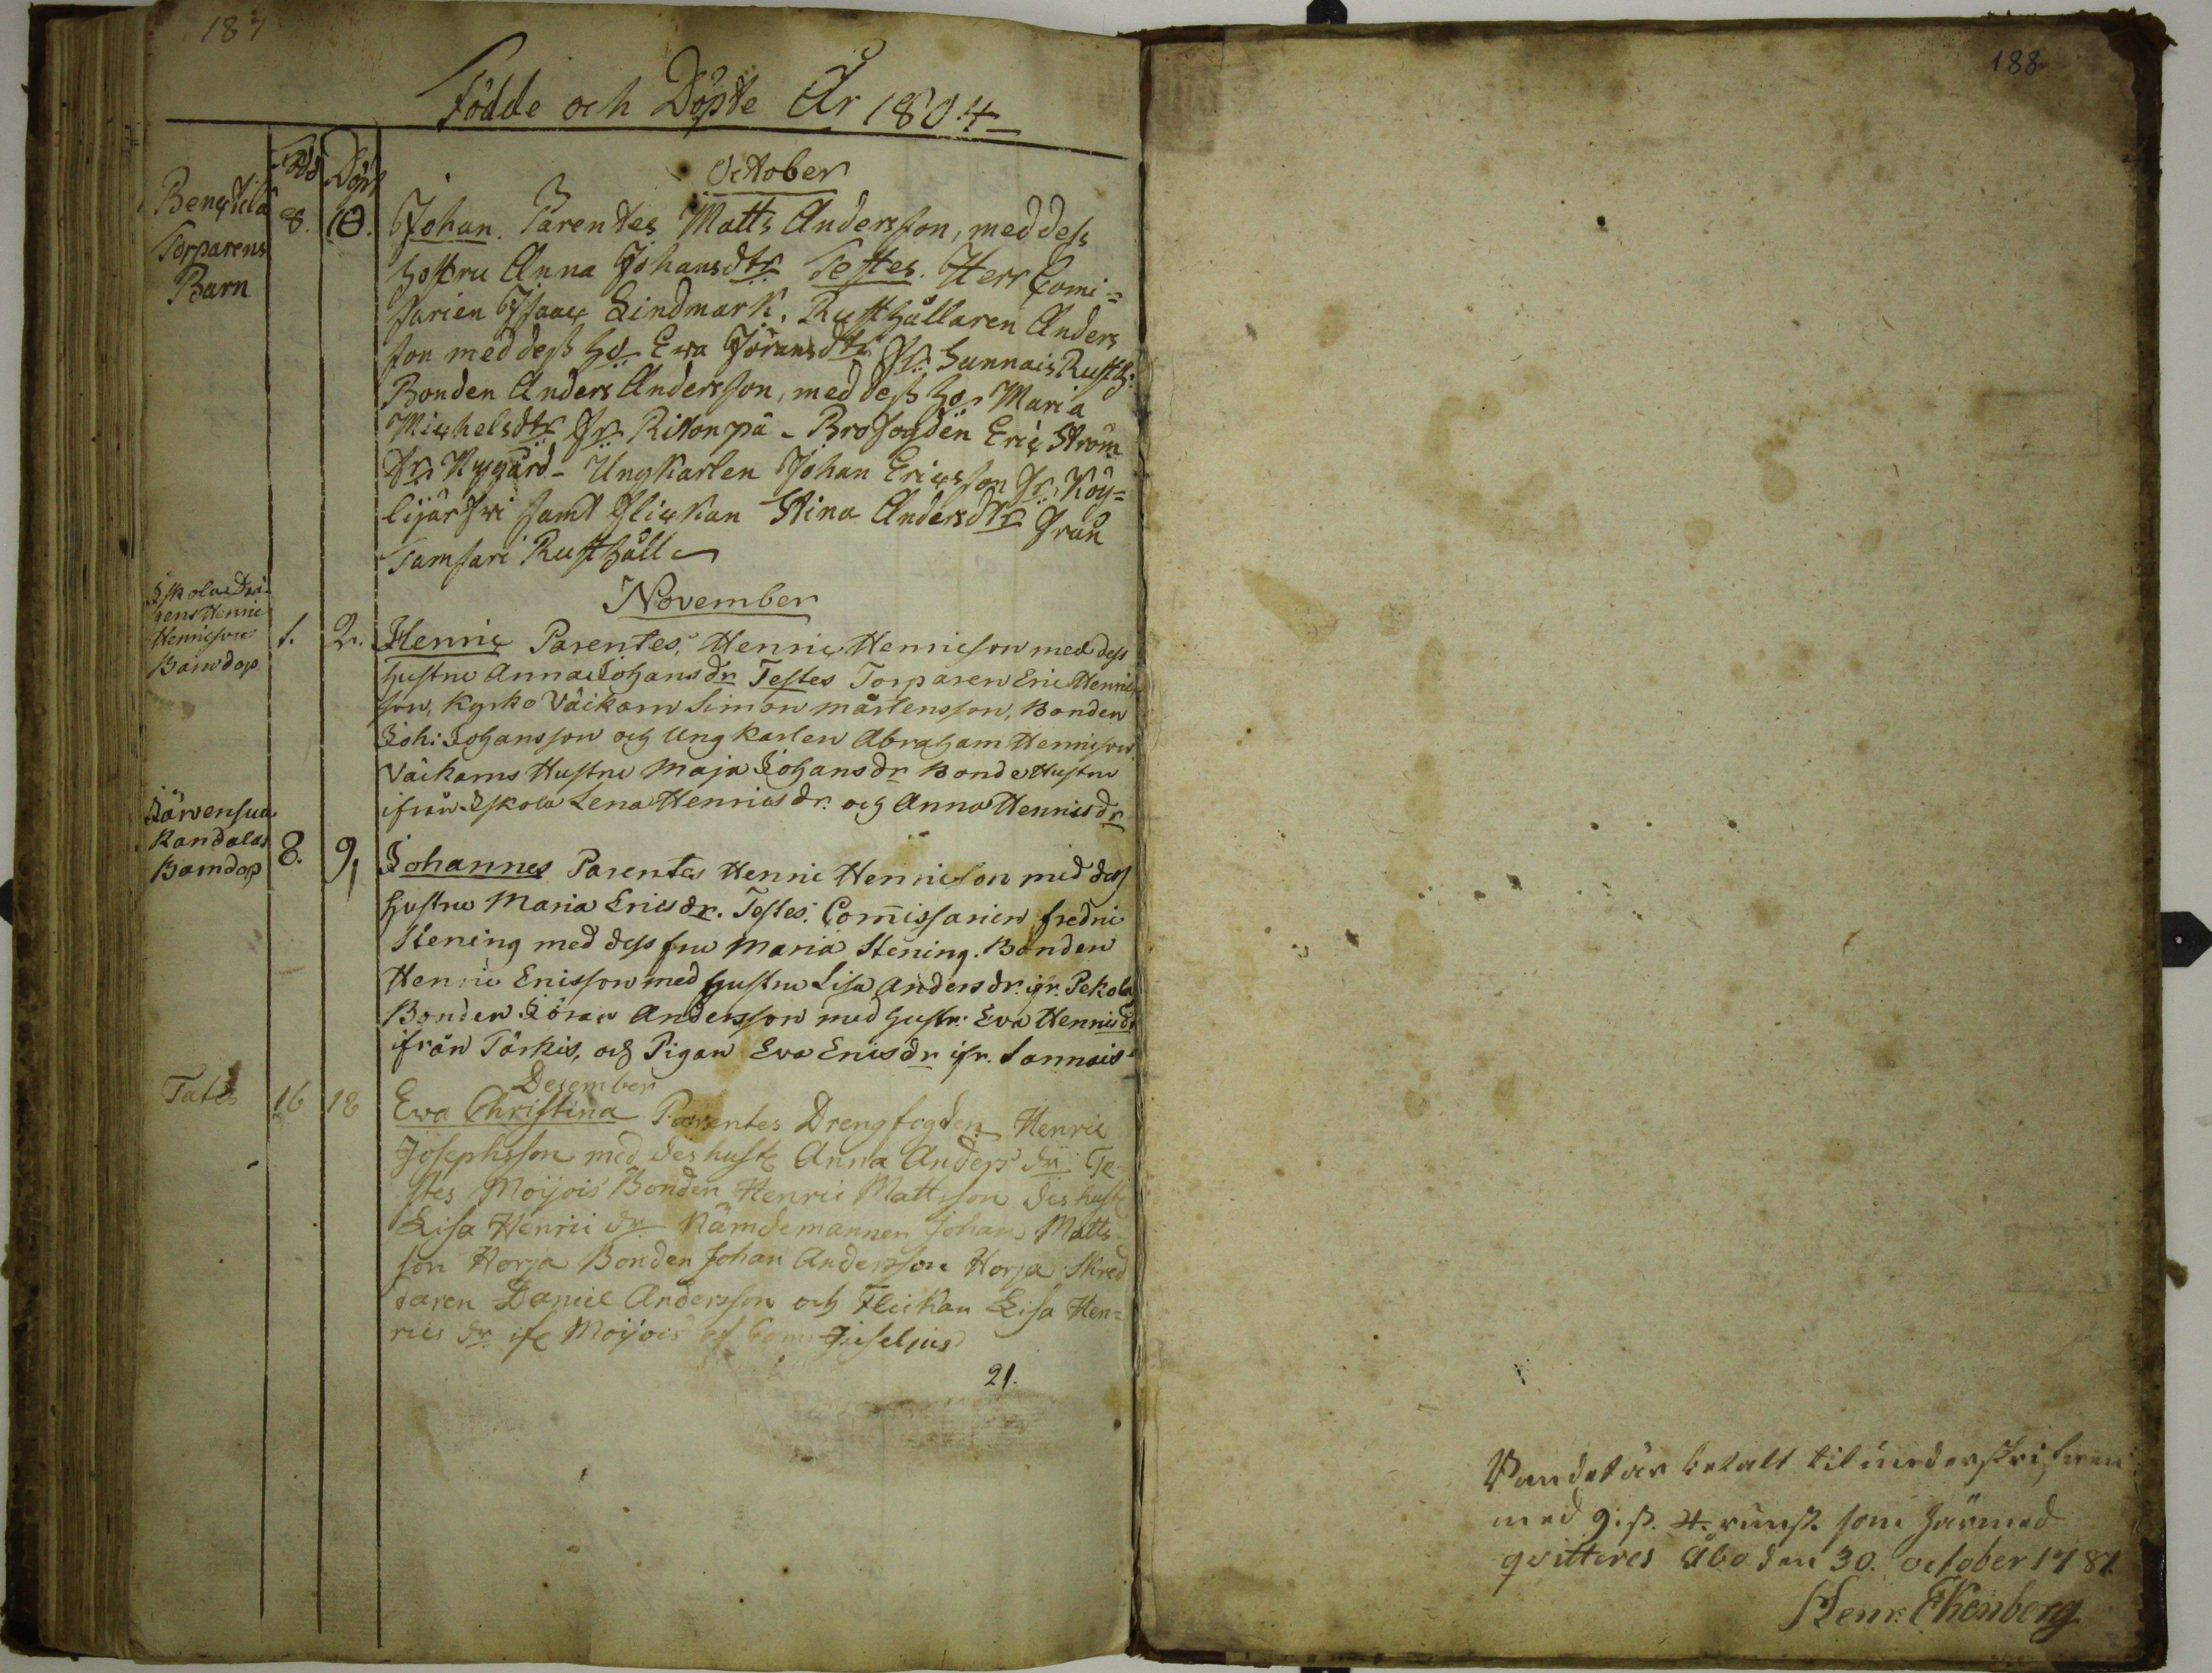 187
Födde och Döpte År 1804
Född Döpt
October
Torparens
Barn
8. 10. Johan. Parentes Matts Andersson, med dess
hostru Anna Johansdtr Testes. Herr Comi=
sarien Isaac Lindmark. Rusthållaren Anders
son med dess ho Ewa Jöransdtr fr. Sunnais Rusth:
Bonden Anders Andersson, med dess ho Maria
Michelsdtr fr. Ritonpä - Brofogden Eric Ström
fr. Nygård - Ungkarlen Johan Ericsson fr. Köy=
lijärfwi samt flickan Stina Andersdtr från
Tamsari Rusthåll
November
Henric
Henricsons
Barndop
1. 2. Henric Parentes, Henric Henricson med dess
hustru Anna Johansdr Testes Torparen Eric Henric
son, Kyrko Väickarn Simon Mårtensson, Bonden
Joh: Johansson och Ungkarlen Abraham Henricson
Väickarns Hustru Maja Johansdr Bonde Hustru
ifrån Iskola Lena Henricsdr. och Anna Henricsdr
Järvensua
Kandalas
Barndop
8. 9, Johannes Parentes Henric Henricson med dess
hustru Maria Ericsdr. Testes. Commissarien fredric
Stening med dess fru Maria Stening. Bonden
Henric Ericsson med hustru Lisa Andersdr. ifr. Pekola
Bonden Jöran Andersson med hustr: Eva Henricsdr
ifrån Törkis, och Pigan Eva Ericsdr ifr. Sannais
Desember
16 18 Ewa Christina Parentes Drengfogden Henric
Josephsson med des hustr Anna Anders dr. Te-
stes Moijois Bonden Henric Mattsson des hustr
Lisa Henric dr. Nämdemannen Johan Matts-
son Horja Bonden Johan Andersson Horja Skred
daren Daniel Andersson och Flickan Lisa Hen=
rics dr. ifr Moijois
21.
188
Bandet är betalt til underskrifwen
med 9. s. 4. runst. som härmed
qvitteres Åbo den 30. october 1781.
Henr: Ekenberg